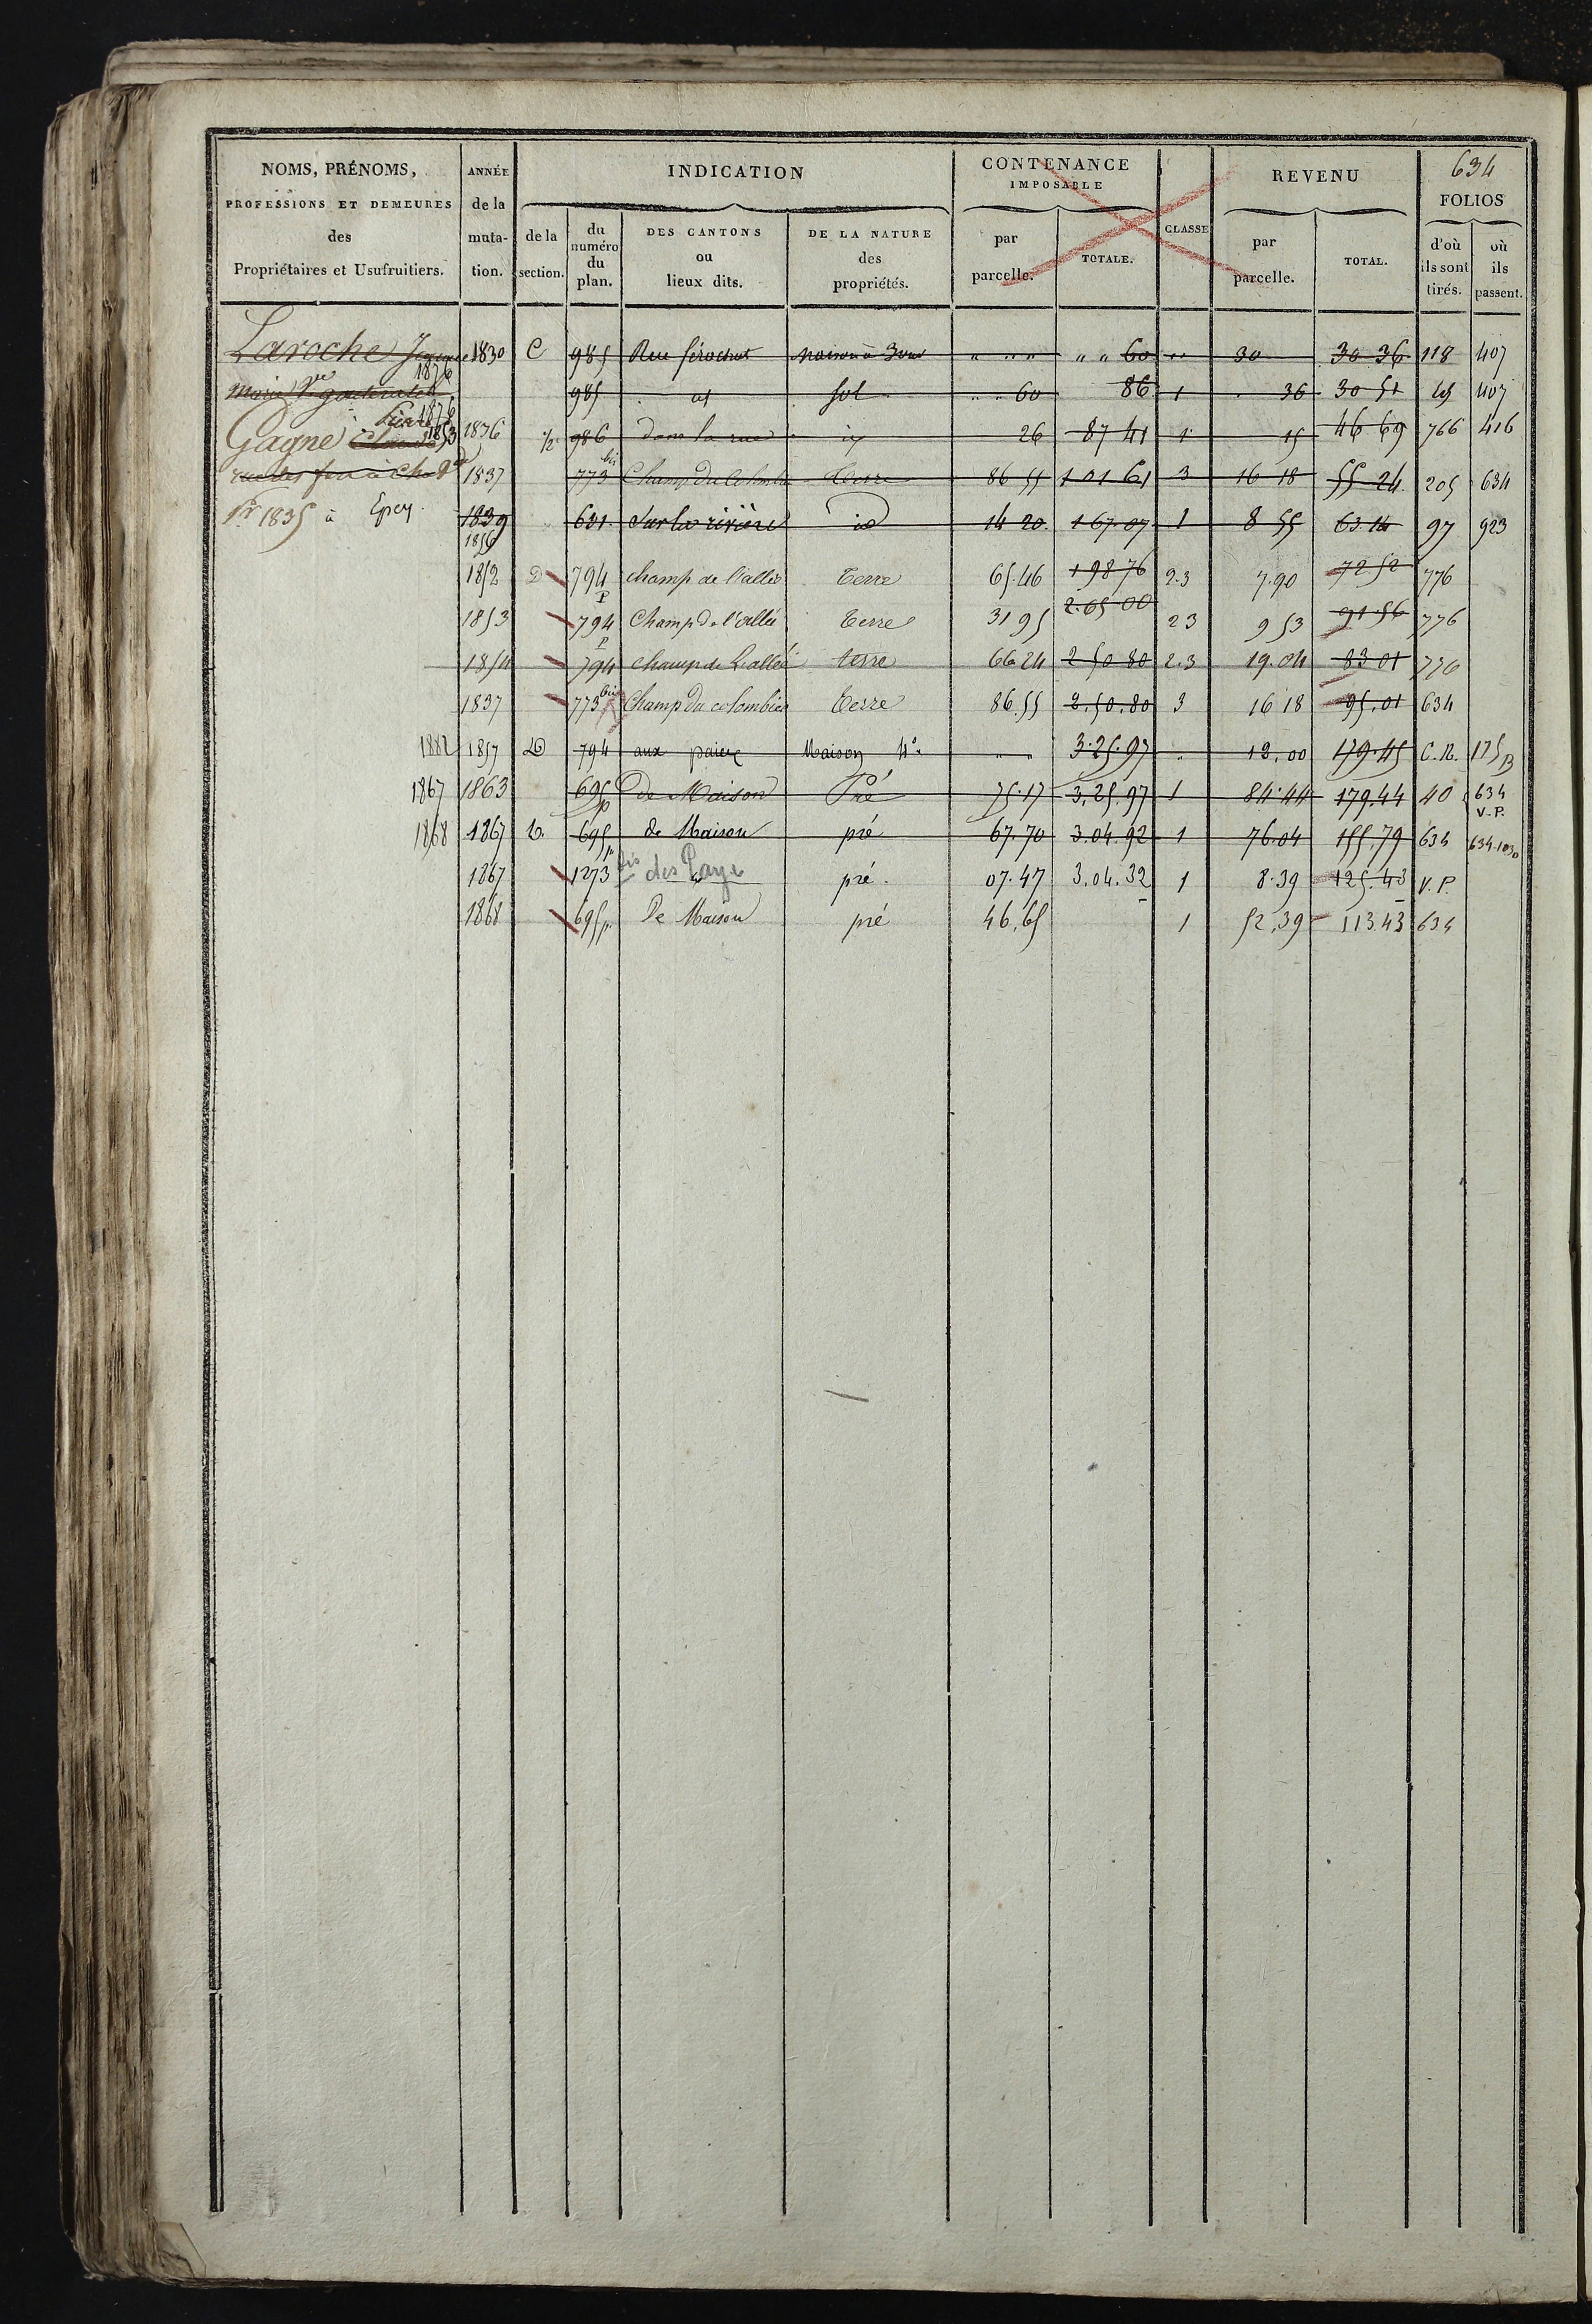 634
NOMS, PRÉNOMS, PROFESSIONS ET DEMEURES des Propriétaires et Usufruitiers.
ANNÉE de la muta- tion.
INDICATION
de la section.
du numéro du plan.
DES CANTONS ou lieux dits.
DE LA NATURE des propriétés.
CONTENANCE IMPOSABLE
par parcelle.
TOTALE.
CLASSE
REVENU
par parcelle.
TOTAL.
FOLIOS
d'où ils sont tirés.
où ils passent.
Laroche 1830 C 985 Rue " " " " " 60 " 30 30 36 118 407
1876
985 sol " " 60 86 1 36 30 51 407
1876
Gagne 1853 1836 1/2 986 dans la rue 26 87 41 1 15 46 69 766 416
1837 773 bis Champ du Terre 86 55 1 01 61 3 16 18 55 24 205 634
1835 à Epey. 1839 601 Sur la rivière id 14 20 1 67 07 1 8 55 63 14 97 923
1856
1852 D 794 P champ de l'allée Terre 65.46 1 98 76 2.3 7.90 72 52 776
1853 794 P Champ de l'allée Terre 31 95 2.65 00 2 3 9 53 91 56 776
1854 794 champ de L'allée terre 66 24 2 50 80 2.3 19.04 83 01 776
1837 773 bis Champ du colombier Terre 86.55 2.50.80 3 16 18 95.01 634
1882 1857 D 794 aux Maison " " 3.25.97 " 12.00 179.45 C.N. 175 B
1867 1863 695 p de Maison Pré 75.17 3.25.97 1 84.44 179.44 40 634 V.P.
1868 1867 695 p de Maison pré 67.70 3.04.92 1 76.04 155,79 634 634.1030
1867 1273 bis des Paye pré. 07.47 3.04.32 1 8.39 125.43 V.P.
1868 695 p. De Maison pré 46,65 1 52,39 113.43 634